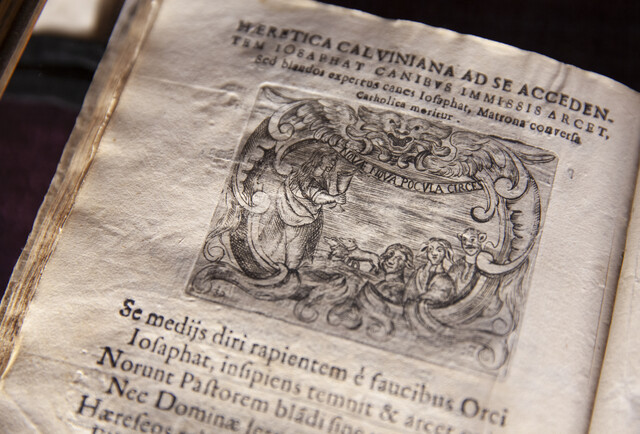 HÆRETICA CALVINIANA AD SE ACCEDEN-
TEM IOSAPHAT CANIBVS IMMISSIS ARCET,
Sed blandos expertus canes Iosaphat, Matrona conversa
Catholica moritur.
POCVLA CIRCES
Se medijs diri rapientem é faucibus Orci
Iosaphat, insipiens temnit & arcet
Norunt Pastorem bládi sine
Nec Dominæ
Hæreseos